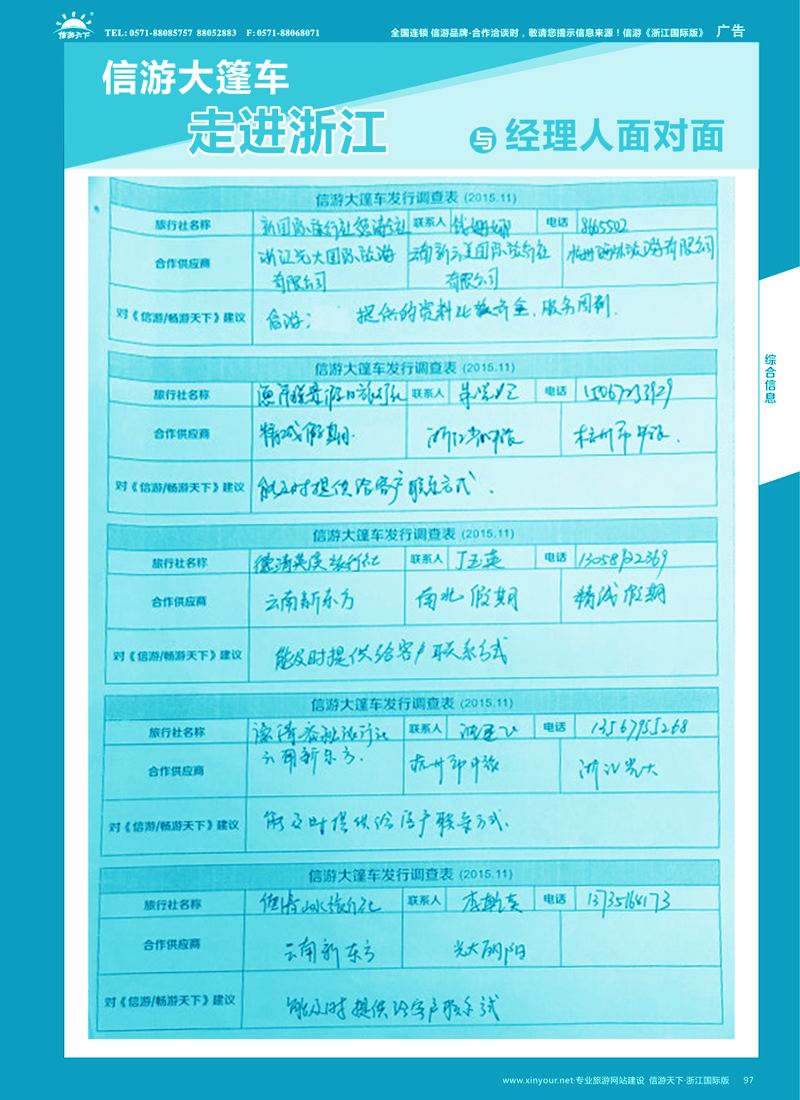 信游天下
TEL: 0571-88085757 88052883 F: 0571-88068071
全国连锁 信游品牌·合作洽谈时，敬请您提示信息来源！信游《浙江国际版》 广告
信游大篷车
走进浙江 与 经理人面对面
综合信息
信游大篷车发行调查表 (2015.11)
旅行社名称 联系人 电话 8665502
合作供应商 浙江光大国际旅游有限公司 云南新三美国际旅行社有限公司
对《信游/畅游天下》建议 信游： 提供的资料比较齐全，服务周到．
信游大篷车发行调查表 (2015.11)
旅行社名称 联系人 电话
合作供应商 精诚假期 浙江省中旅 杭州市中旅．
对《信游/畅游天下》建议 能及时提供给客户联系方式．
信游大篷车发行调查表 (2015.11)
旅行社名称 德清英溪旅行社 联系人 丁玉英 电话
合作供应商 云南新东方 南北假期 精诚假期
对《信游/畅游天下》建议 能及时提供给客户联系方式
信游大篷车发行调查表 (2015.11)
旅行社名称 联系人 电话 13567955268
合作供应商 云南新东方． 杭州市中旅 浙江光大
对《信游/畅游天下》建议 能及时提供给客户联系方式．
信游大篷车发行调查表 (2015.11)
旅行社名称 联系人 电话 13735164173
合作供应商 云南新东方 光大
对《信游/畅游天下》建议 能及时提供给客户联系方式
www.xinyour.net·专业旅游网站建设 信游天下·浙江国际版 97